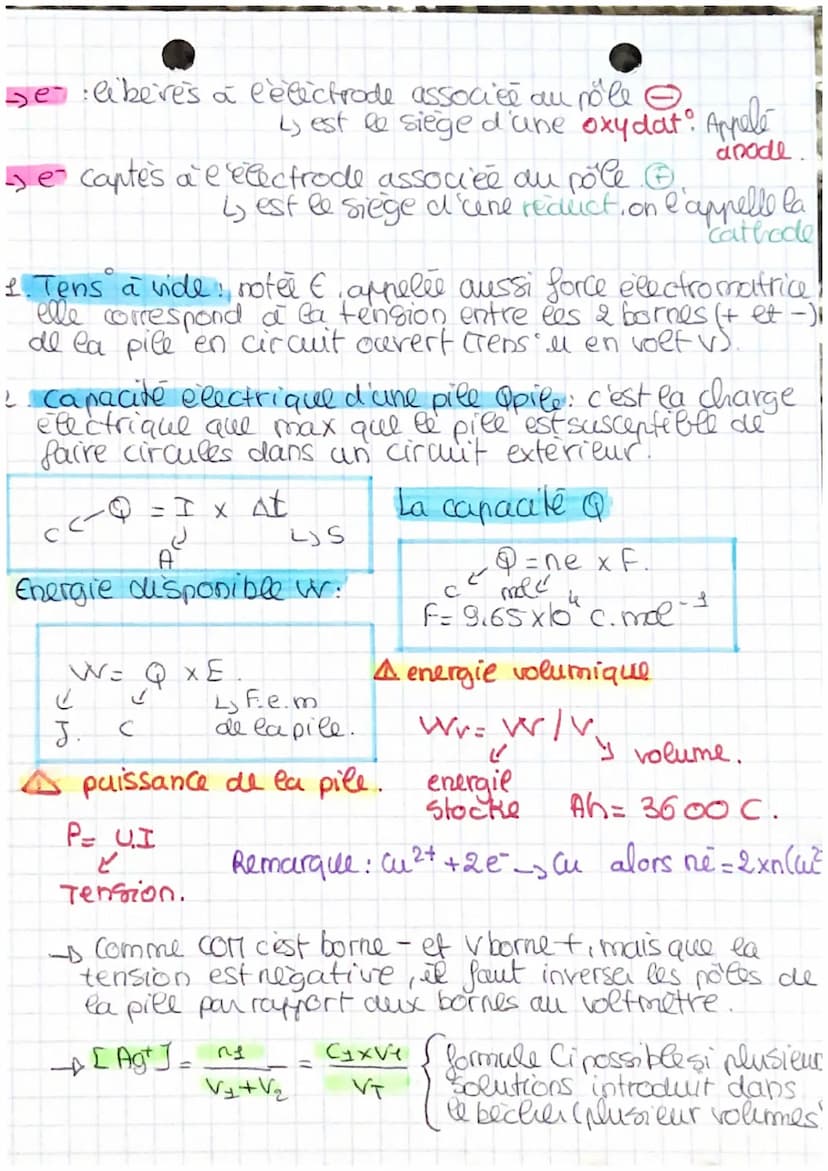 → e⁻ : libérés à l'électrode associée au pôle ⊖
↳ est le siège d'une oxydat°. Appelé
anode.
→ e⁻ captés à l'électrode associée au pôle ⊕
↳ est le siège d'une réduct. on l'appelle la
cathode
1. Tens° à vide : notée E, appelée aussi force électromatrice,
elle correspond à la tension entre les 2 bornes (+ et -)
de la pile en circuit ouvert (Tens° u en volt V).
2. capacité électrique d'une pile Qpile : c'est la charge
électrique que max que le pile est susceptible de
faire circules dans un circuit extérieur.
Q = I x Δt
C A ↳ S
La capacité Q
Q = ne x F.
C mol
F = 9.65 x 10⁴ C.mol⁻¹
Energie disponible W :
W = Q x E.
J. C ↳ F.e.m
de la pile.
⚠ energie volumique
Wv = W / V
volume.
energie
stocke Ah = 3600 C.
⚠ puissance de la pile.
P = U.I
Tension.
Remarque : Cu²⁺ + 2e⁻ → Cu alors né = 2xn(Cu²
→ Comme COM c'est borne - et V borne +, mais que la
tension est négative, il faut inverser les pôles de
la pile par rapport aux bornes au voltmètre.
→ [Ag⁺] = n1 / V1+V2 = C1xV1 / VT { formule Ci possible si plusieur
solutions introduit dans
le bécher (plusieur volumes